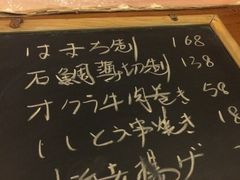 はまち刺 168
石鯛薄切刺 138
オクラ牛肉巻き 58
ししとう串焼き 18
揚げ